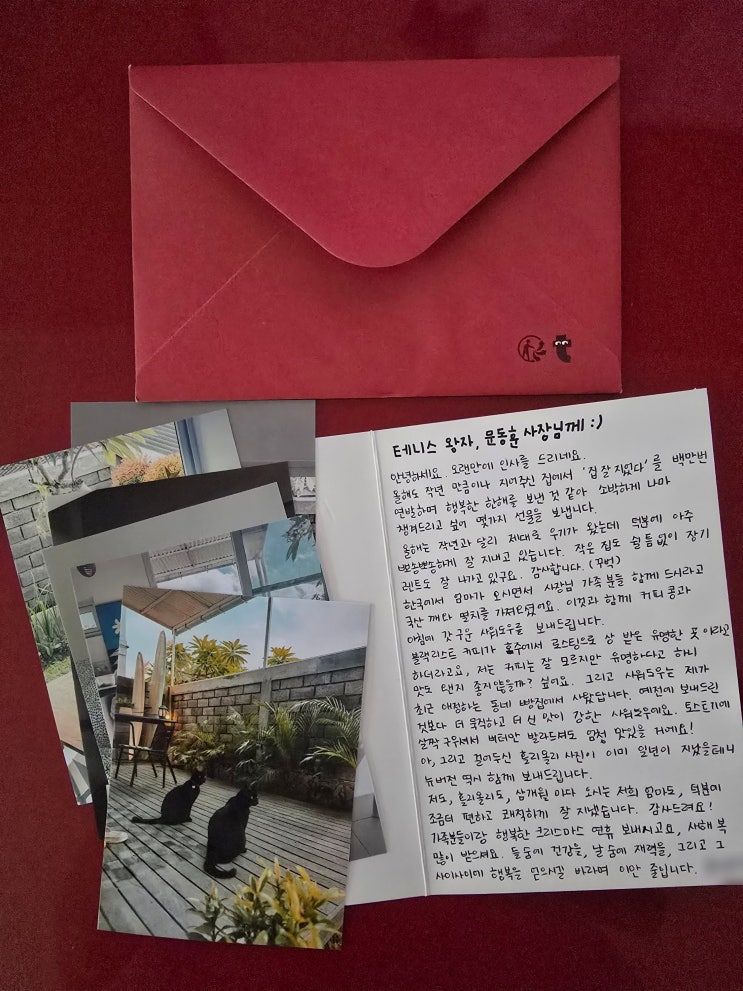 테니스 왕자, 문동훈 사장님께 :)
안녕하세요. 오랜만에 인사를 드리네요.
올해도 작년 만큼이나 지어주신 집에서 '집 잘 지었다'를 백만번
연발하며 행복한 한해를 보낸 것 같아 소박하게 나마
챙겨드리고 싶어 몇가지 선물을 보냅니다.
올해는 작년과 달리 제대로 우기가 왔는데 덕분에 아주
뽀송뽀송하게 잘 지내고 있습니다. 작은 집도 쉴 틈 없이 장기
렌트도 잘 나가고 있구요. 감사합니다. (꾸벅)
한국에서 엄마가 오시면서 사장님 가족 분들 함께 드시라고
국산 깨와 멸치를 가져와었어요. 이것과 함께 커피 콩과
아침에 갓 구운 사워도우를 보내드립니다.
블랙리스트 커피가 호주에서 로스팅으로 상 받은 유명한 곳이라고
하더라고요, 저는 커피는 잘 모르지만 유명하다고 하니
맛도 왠지 좋지않을까? 싶어요. 그리고 사워도우는 제가
최근 애정하는 동네 빵집에서 사왔답니다. 예전에 보내드린
것보다 더 묵직하고 더 신 맛이 강한 사워도우에요. 토스트기에
살짝 구우셔서 버터만 발라드셔도 엄청 맛있을 거에요!
아, 그리고 걸어두신 홀리몰리 사진이 이미 일년이 지났을테니
뉴버전 역시 함께 보내드립니다.
저도, 홀리몰리도, 삼개월 마다 오시는 저희 엄마도, 덕분에
조금더 편하고 쾌적하게 잘 지냈습니다. 감사드려요!
가족분들이랑 행복한 크리스마스 연휴 보내시고요, 새해 복
많이 받으셔요. 들숨에 건강을, 날숨에 재력을, 그리고 그
사이사이에 행복을 얻으시길 바라며 이만 줄입니다.